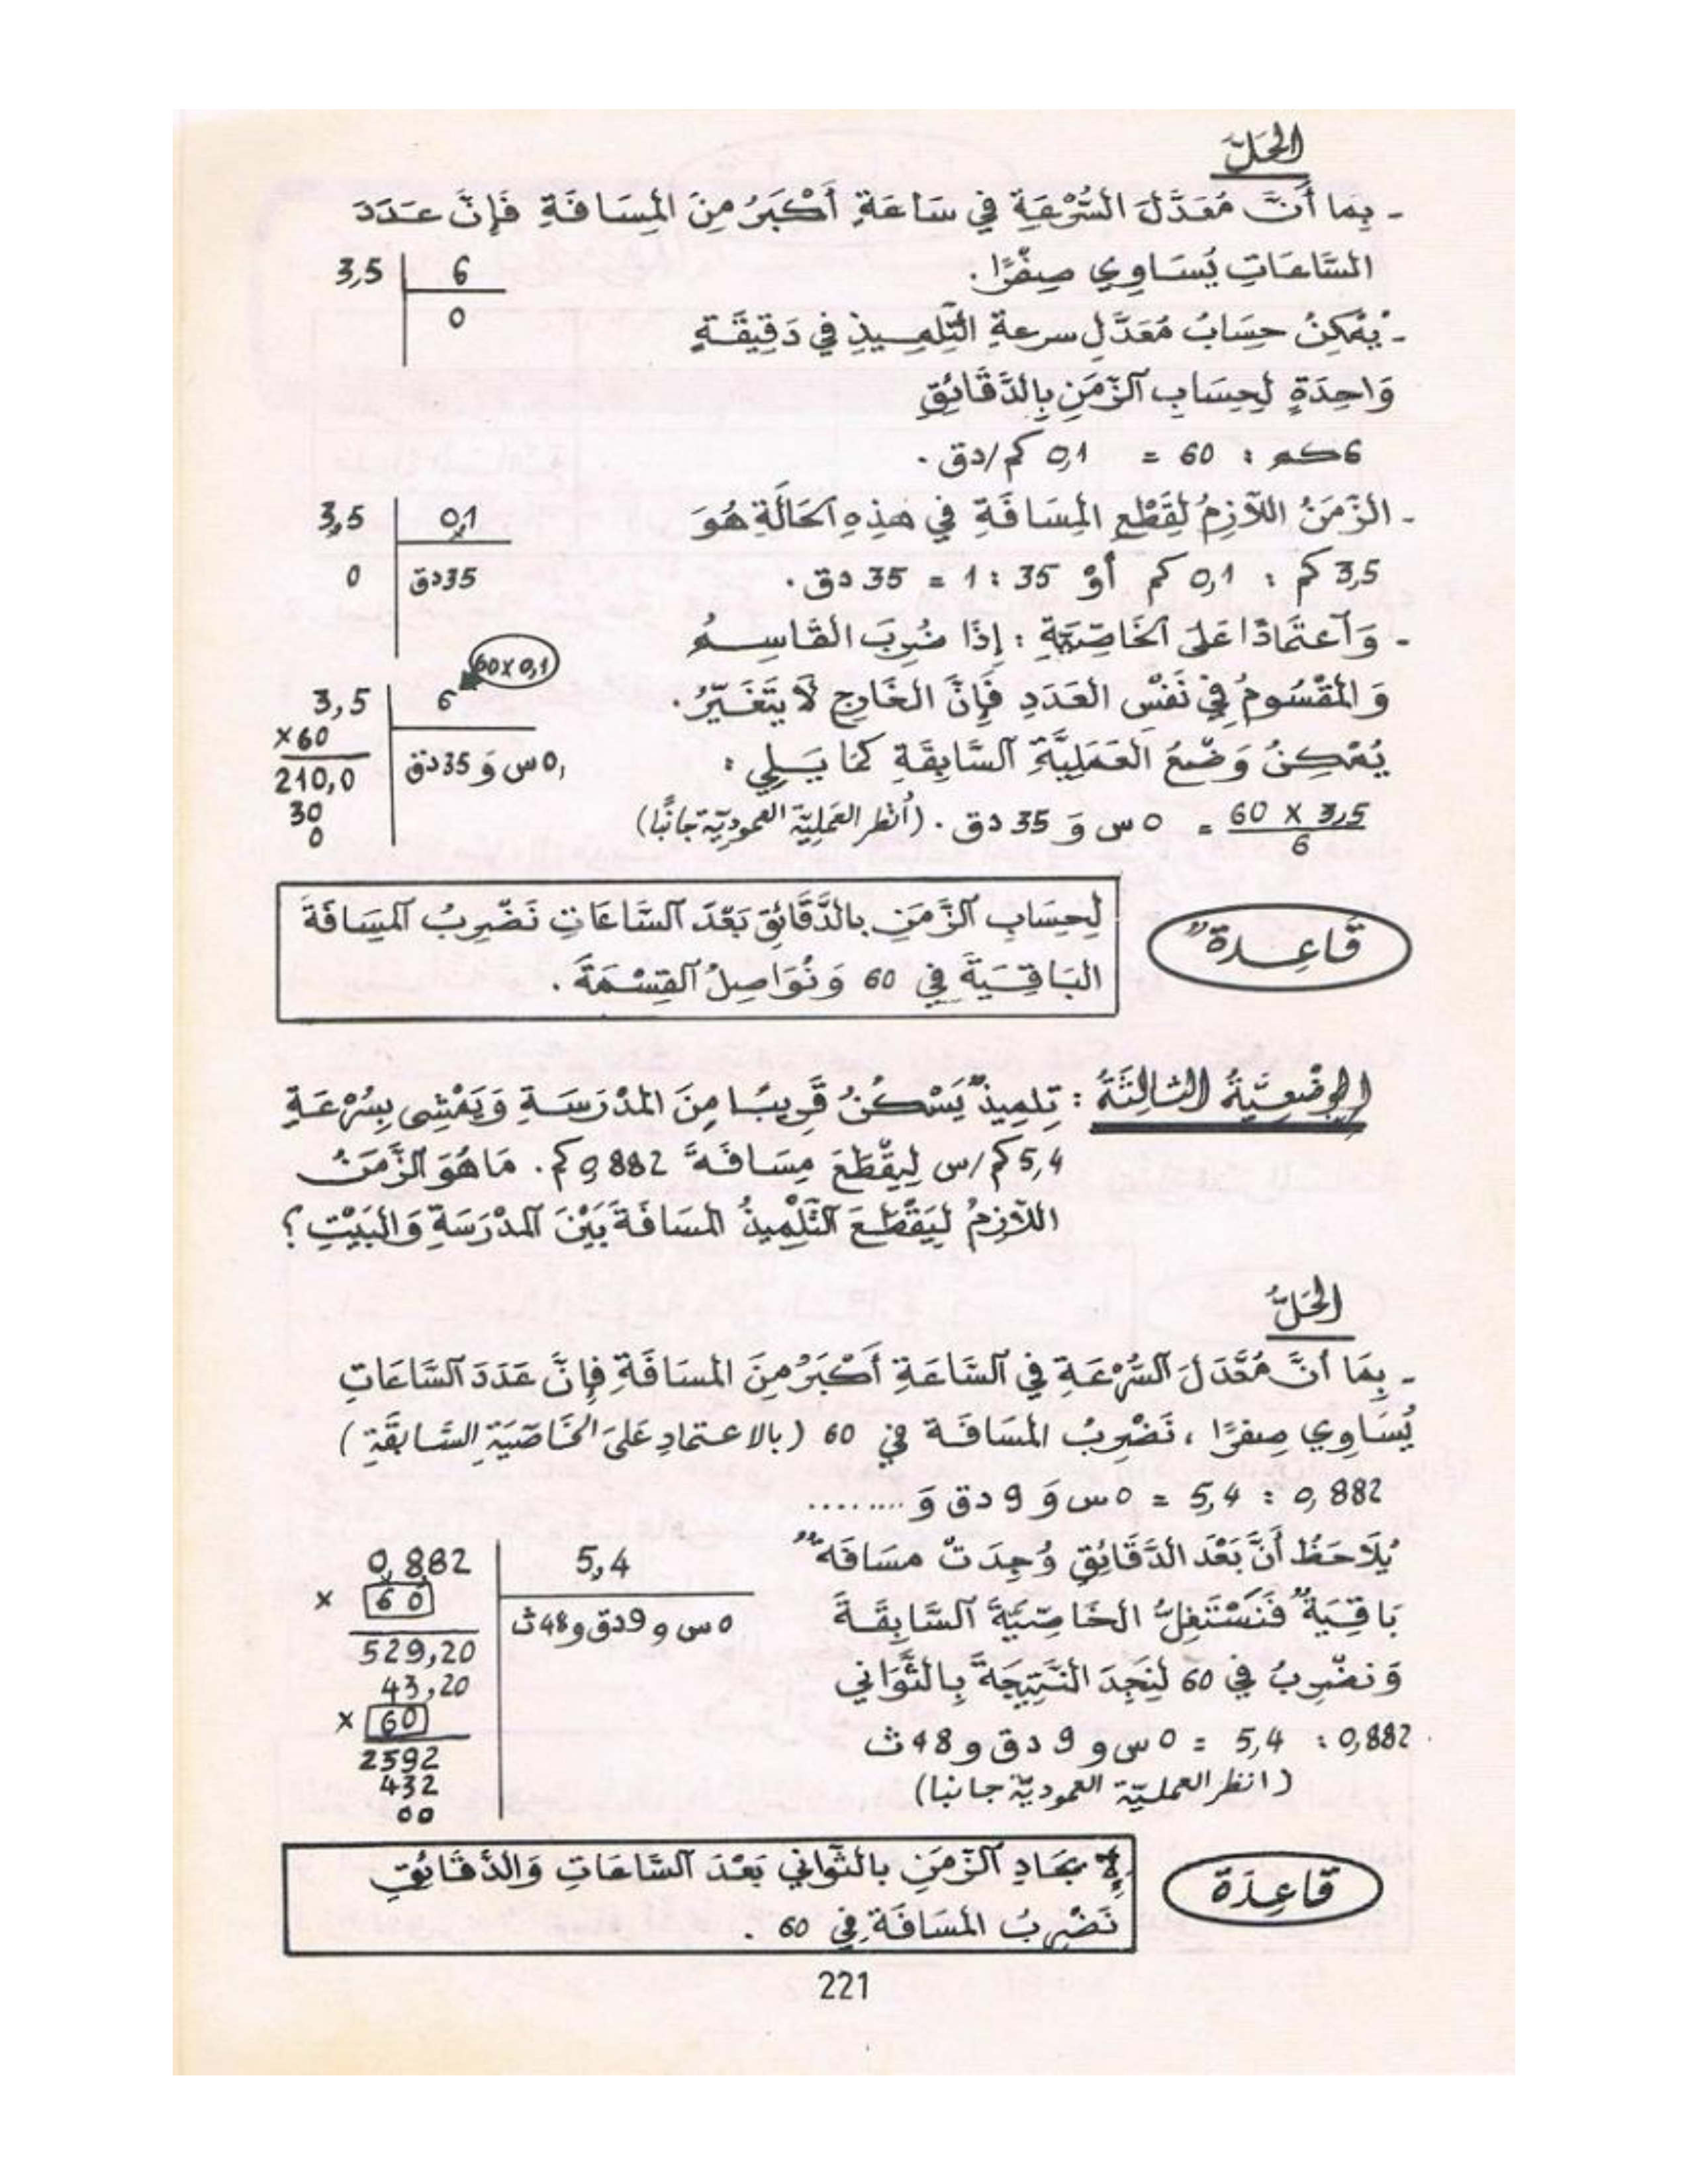 الحَلّ
- بِما أَنَّ مُعَدَّلَ السُّرْعَةِ في سَاعَةٍ أَكْبَرُ مِنَ المِسَافَةِ فَإِنَّ عَدَدَ
السَّاعَاتِ يُسَاوِي صِفْرًا.
3,5 | 6
0
- يُمْكِنُ حِسَابُ مُعَدَّلِ سرعةِ التِّلْمِيذِ في دَقِيقَةٍ
وَاحِدَةٍ لِحِسَابِ الزَّمَنِ بِالدَّقَائِقِ
6كم : 60 = 0,1 كم/دق .
- الزَّمَنُ اللاَّزِمُ لِقَطْعِ المِسَافَةِ في هذِهِ الحَالَةِ هُوَ
3,5 | 0,1
0 | 35دق
3,5 كم : 0,1 كم أَوْ 35 : 1 = 35 دق .
- وَاعْتِمَادًا عَلَى الخَاصِّيَّةِ : إِذَا ضُرِبَ القَاسِمُ
وَ المَقْسُومُ فِي نَفْسِ العَدَدِ فَإِنَّ الخَارِجَ لاَ يَتَغَيَّرُ.
60x0,1
3,5 | 6
x60
210,0 | 0س وَ 35دق
30
0
يُمْكِنُ وَضْعُ العَمَلِيَّةِ السَّابِقَةِ كَما يَلِي :
60 x 3,5 / 6 = 0 س وَ 35 دق . (أُنظر العَمَلِيّة العموديّة جانبًا)
قَاعِدةٌ
لِحِسَابِ الزَّمَنِ بالدَّقَائِقِ بَعْدَ السَّاعَاتِ نَضْرِبُ المَسَافَةَ
البَاقِيَةَ فِي 60 وَ نُوَاصِلُ القِسْمَةَ .
الوَضْعِيَّةُ الثالِثَةُ : تِلمِيذٌ يَسْكُنُ قَرِيبًا مِنَ المَدْرَسَةِ وَيَمْشِي بِسُرْعَةِ
5,4 كم/س لِيَقْطَعَ مِسَافَةَ 0,882 كم. مَا هُوَ الزَّمَنُ
اللاَّزِمُ لِيَقْطَعَ التِّلْمِيذُ المسَافَةَ بَيْنَ المَدْرَسَةِ وَالبَيْتِ ؟
الحَلُّ
- بِمَا أَنَّ مُعَدَّلَ السُّرْعَةِ فِي السَّاعَةِ أَكْبَرُ مِنَ المسَافَةِ فإِنَّ عَدَدَ السَّاعَاتِ
يُسَاوِي صِفرًا ، نَضْرِبُ المسَافَةَ في 60 (بالاعتمادِ عَلَى الخَاصِّيَةِ السَّابقَةِ)
0,882 : 5,4 = 0 س وَ 9 دق وَ ........
يُلاَحَظُ أَنَّ بَعْدَ الدَّقَائِقِ وُجِدَتْ مسَافَةٌ
بَاقِيَةٌ فَنَسْتَغِلُّ الخَاصِّيَّةَ السَّابِقَةَ
وَنضْرِبُ فِي 60 لِنَجِدَ النَّتِيجَةَ بِالثَّوَانِي
0,882 : 5,4 = 0 س و 9 دق و 48 ث
(انظر العمليّة العموديّة جانبا)
0,882 | 5,4
x 60
529,20 | 0س و 9دق و 48ث
43,20
x 60
2592
432
00
قَاعِدَة
لإِيجَادِ الزَّمَنِ بالثَّواني بَعْدَ السَّاعَاتِ وَالدَّقَائِقِ
نَضْرِبُ المَسَافَةَ فِي 60 .
221